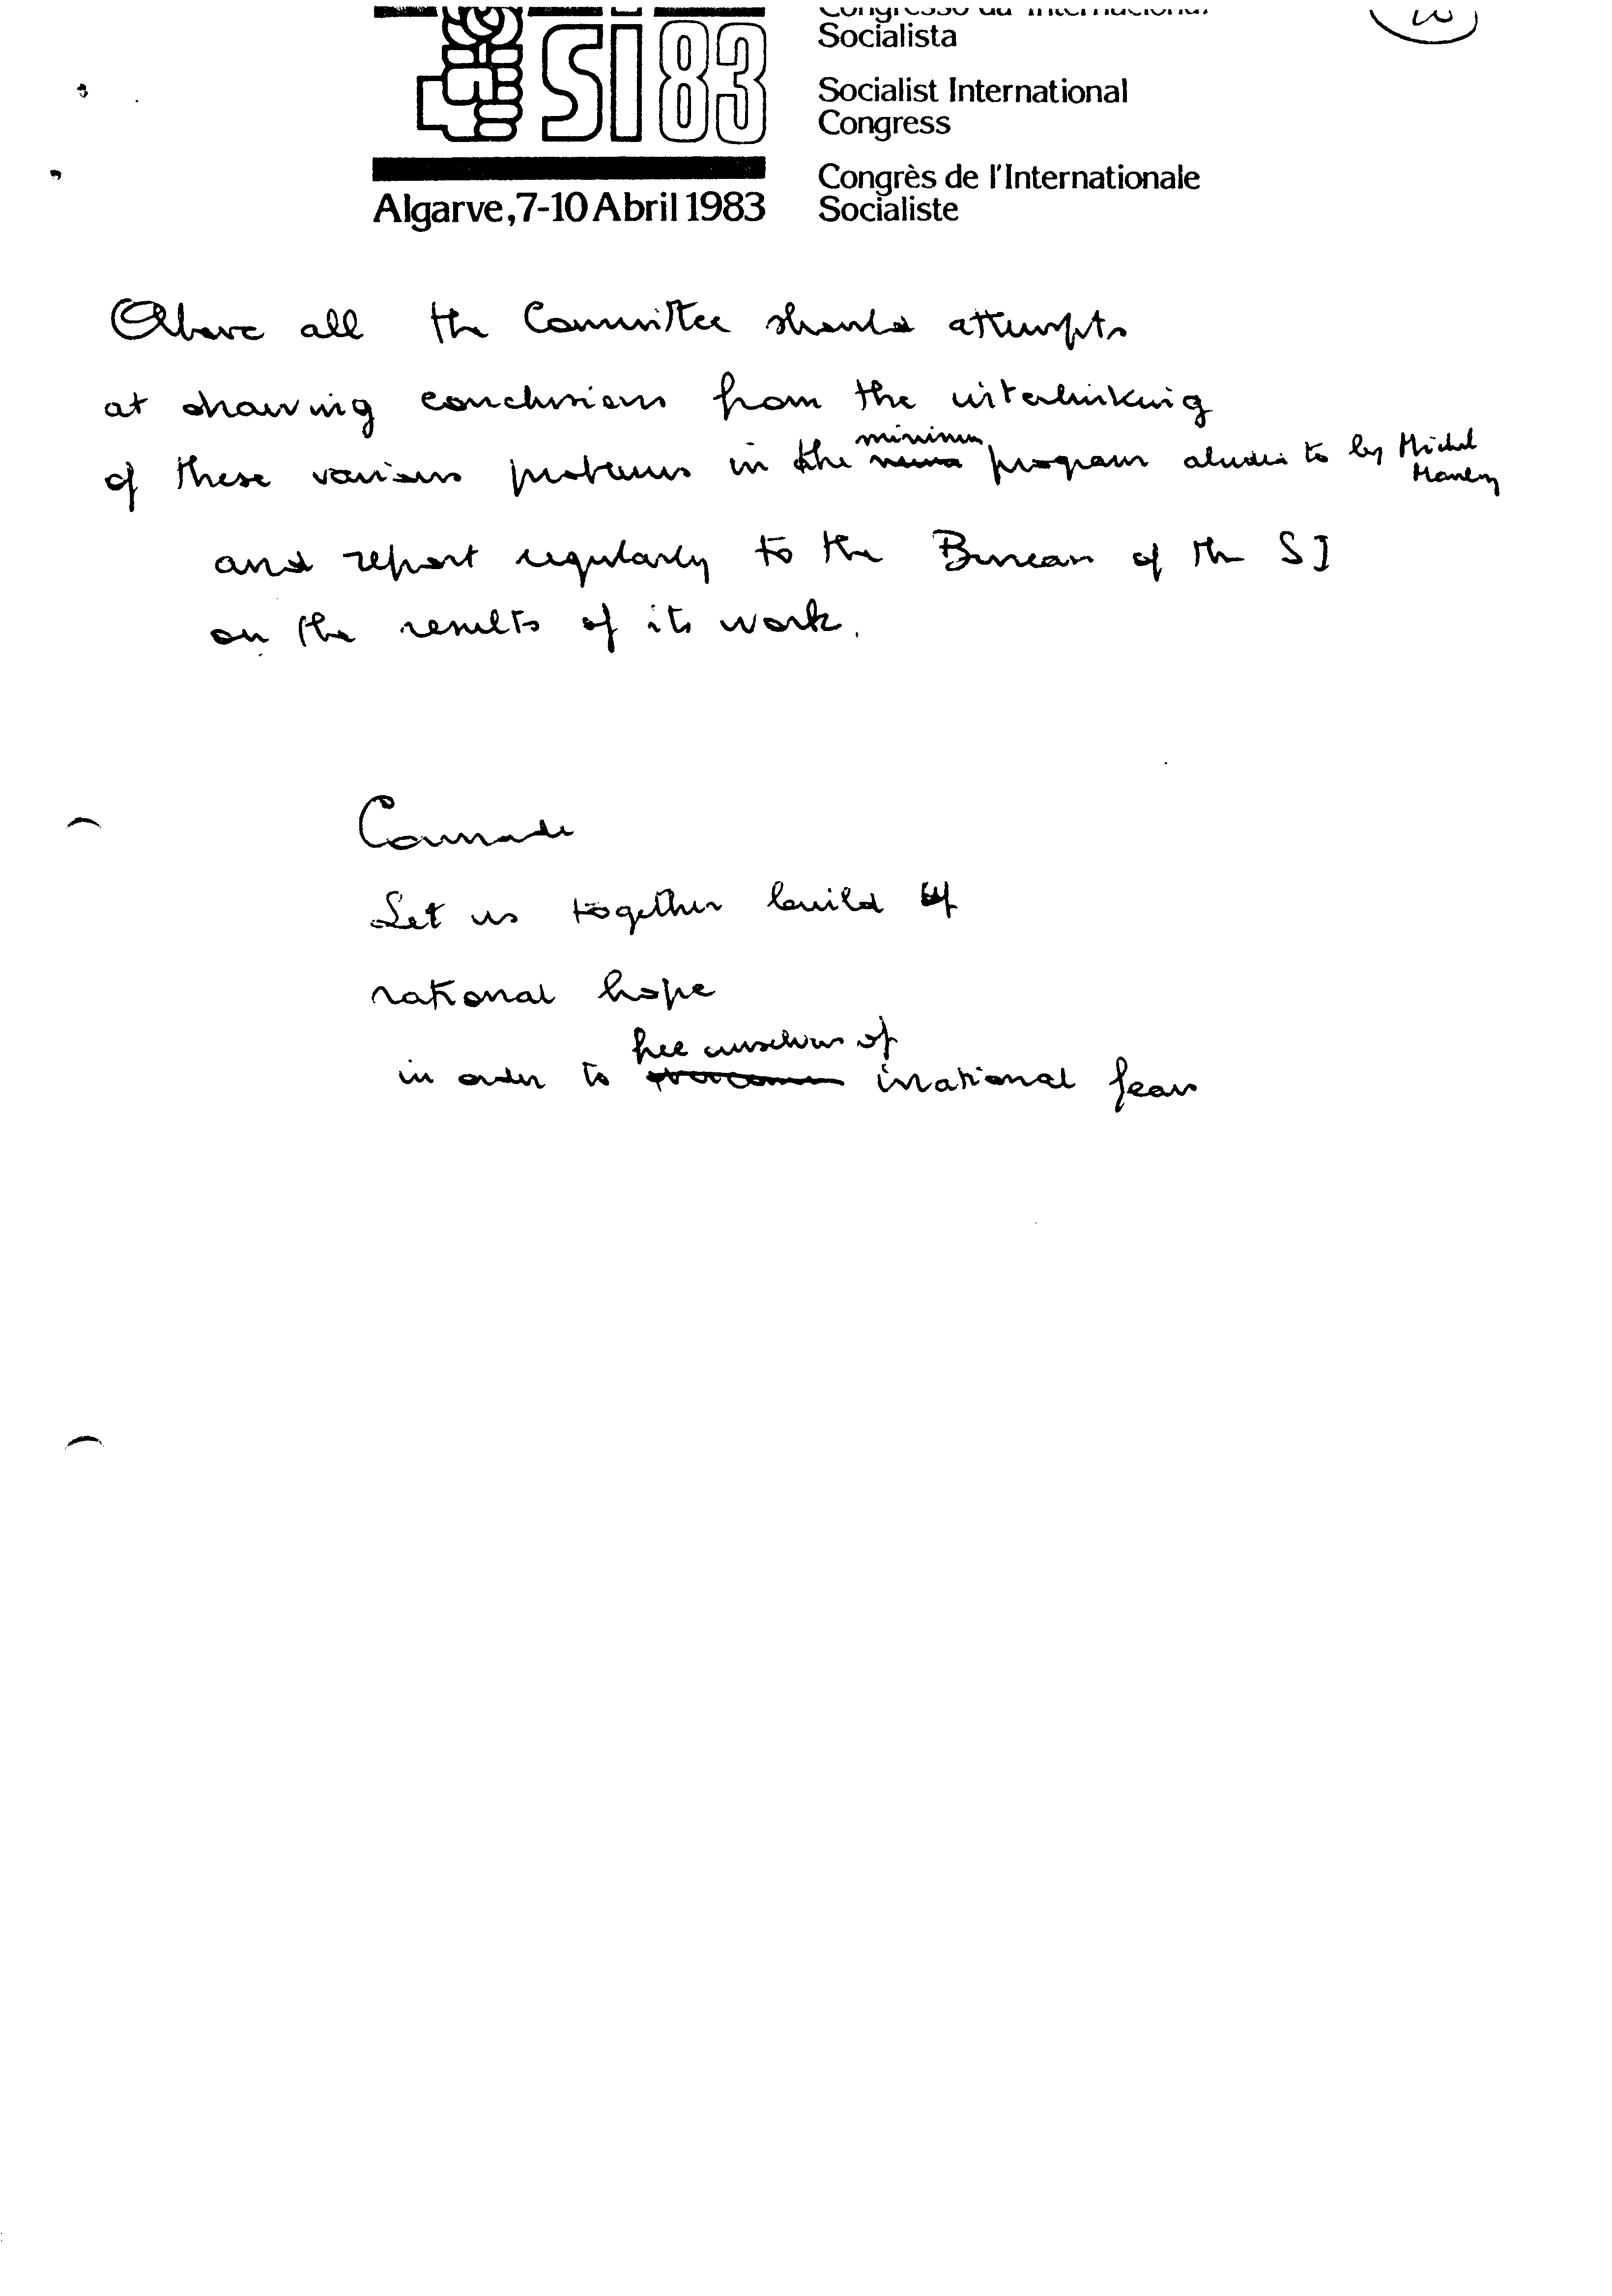 SI 83
Algarve, 7-10 Abril 1983
Congresso da Internacional
Socialista
Socialist International
Congress
Congrès de l'Internationale
Socialiste
Above all the Committee should attempts
at drawing conclusions from the interlinking
of these various problems in the minimum program aluded to by Michel Manley
and report regularly to the Bureau of the SI
on the results of its work.
Comrade
Let us together build up
rational hope
in order to overcome free ourselves of irrational fears